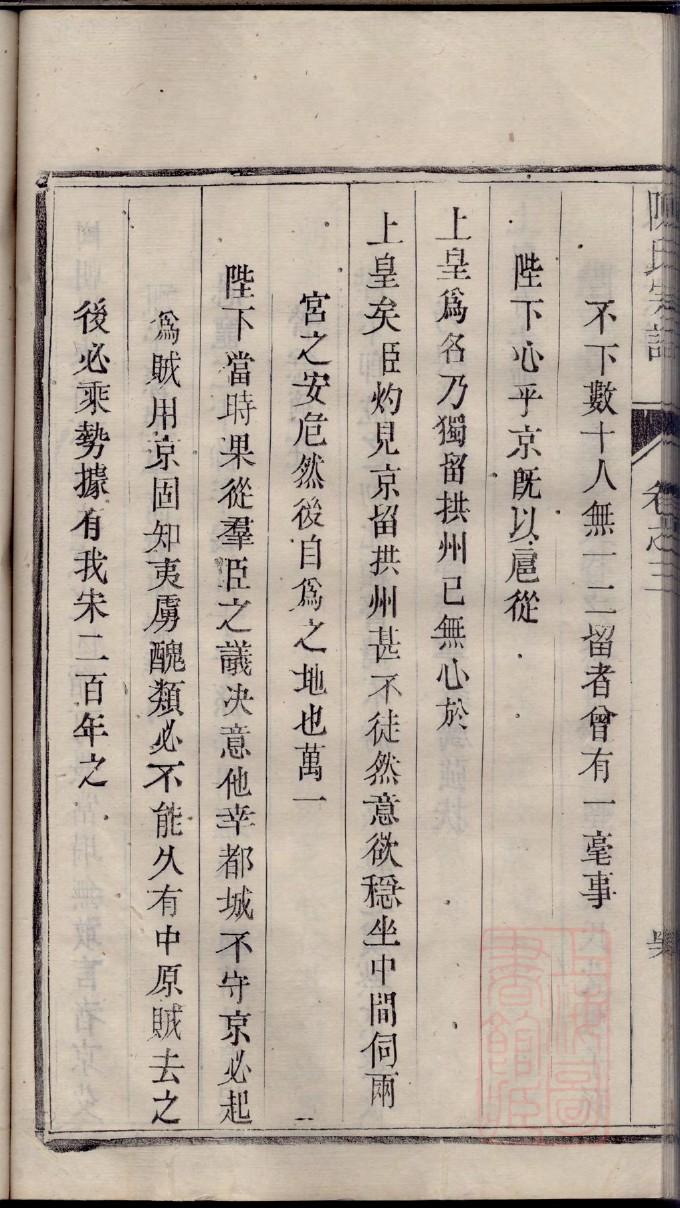 不下數十人無一二留者曾有一毫事
陛下心乎京旣以扈從
上皇爲名乃獨留拱州已無心於
上皇矣臣灼見京留拱州甚不徒然意欲穩坐中間伺兩
宮之安危然後自爲之地也萬一
陛下當時果從羣臣之議决意他幸都城不守京必起
爲賊用京固知夷虜醜類必不能久有中原賊去之
後必乘勢據有我宋二百年之
卷之三